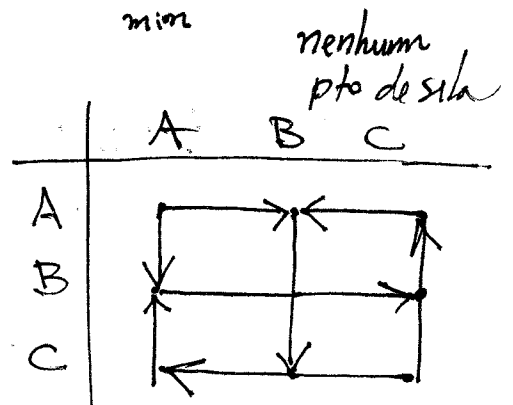 min
nenhum
pto de sela
A B C
A
B
C